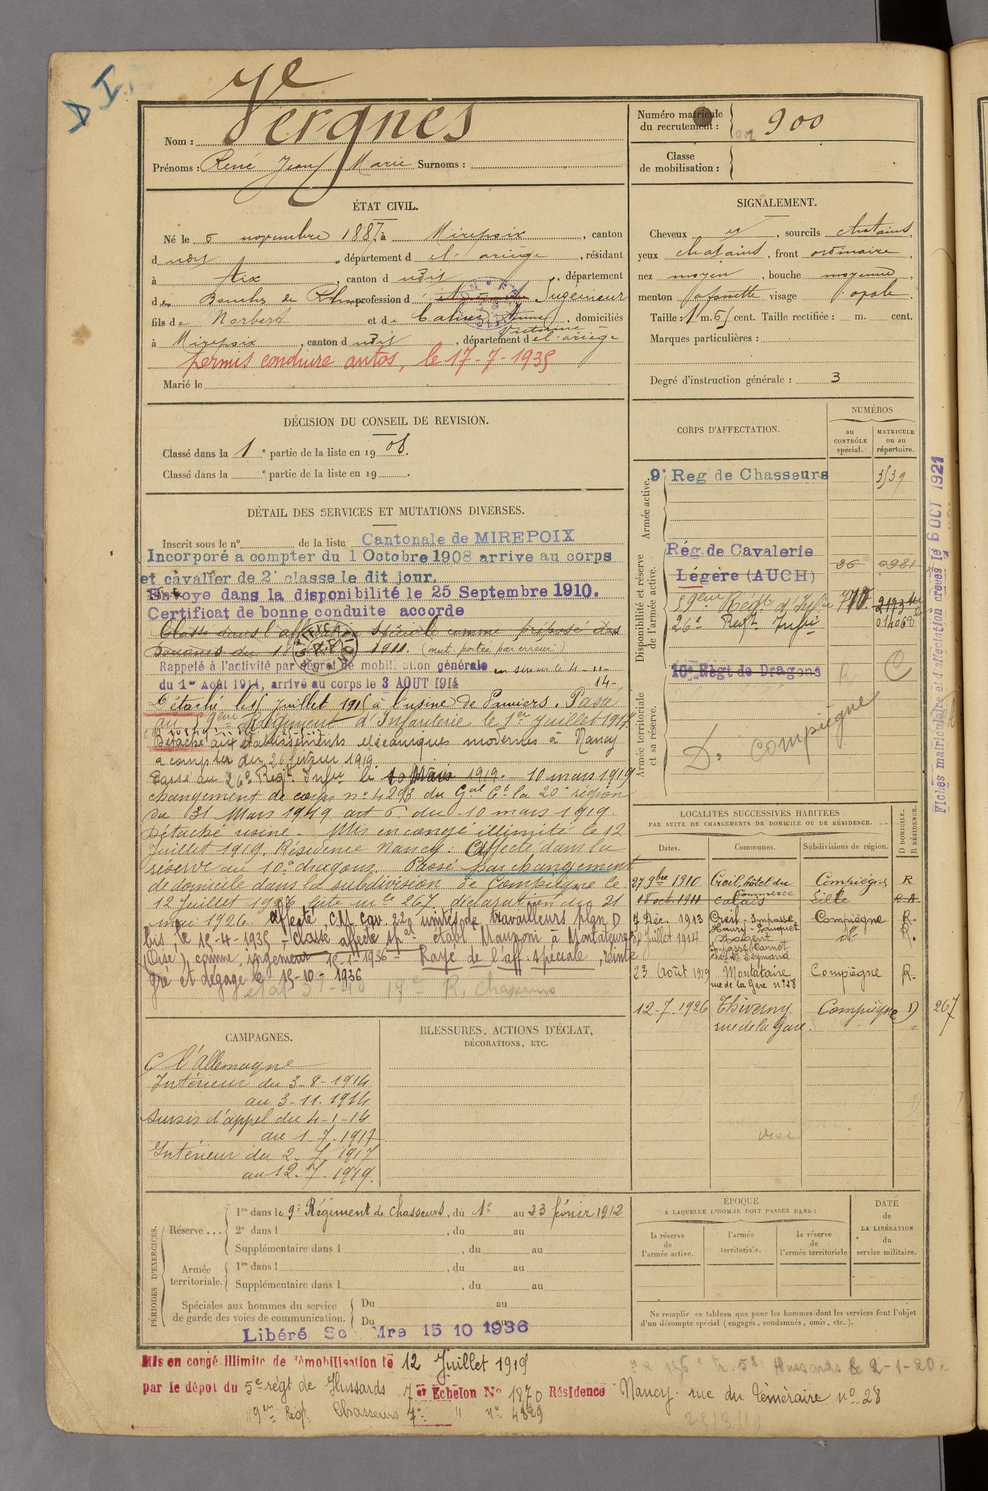 D I
7e
Nom : Vergnes
Prénoms : René Jean Marie Surnoms :
Numéro matricule du recrutement : 900
Classe de mobilisation :
ÉTAT CIVIL.
Né le 6 novembre 1887, à Mirepoix, canton
d udit, département d e l'ariège, résidant
à Aix, canton d udit, département
des Bouches du Rhône profession d Ingénieur
fils de Norbert et de, domiciliés
à Mirepoix, canton d udit, département de l'ariège
permis conduire autos, le 17-7-1935
Marié le
SIGNALEMENT.
Cheveux et, sourcils chatains,
yeux chatains, front ordinaire,
nez moyen, bouche moyenne,
menton à fossette visage ovale.
Taille : 1 m. 65 cent. Taille rectifiée : m. cent.
Marques particulières :
Degré d'instruction générale : 3
DÉCISION DU CONSEIL DE REVISION.
Classé dans la 1e partie de la liste en 1908.
Classé dans la e partie de la liste en 19
CORPS D'AFFECTATION.
NUMÉROS
au CONTRÔLE spécial.
MATRICULE ou au répertoire.
Armée active.
9e Reg de Chasseurs
Disponibilité et réserve de l'armée active.
Rég. de Cavalerie
Légère (AUCH)
59eme Régt d'Infie
26e Regt Infie
Armée territoriale et sa réserve.
10e Régt de Dragons
C
D. Compiègne
Fiches matriculaire et d'affectation créées le 6 OCT 1921
DÉTAIL DES SERVICES ET MUTATIONS DIVERSES.
Inscrit sous le n° de la liste Cantonale de MIREPOIX
Incorporé a compter du 1 Octobre 1908 arrive au corps
et cavalier de 2e classe le dit jour.
Envoye dans la disponibilité le 25 Septembre 1910.
Certificat de bonne conduite accorde
Classé dans l'aff. spéciale comme préposé des
Douanes du 1911. (mut. portée par erreur)
Rappelé à l'activité par décret de mobilisation générale
du 1er Août 1914, arrivé au corps le 3 AOUT 1914
Détaché le 15 juillet 1915 à l'usine de Pamiers. Passé
au 59eme Régiment d'Infanterie le 1er juillet 1917
Détaché aux établissements mécaniques modernes à Nancy
a compter du 26 février 1919.
Passé au 26e Regt Infie le 10 Mars 1919. — 10 mars 1919
changement de corps n° 4293 du Gal Ct la 20e région
du 31 Mars 1919 art 6 du 10 mars 1919.
Détaché usine. Mis en congé illimité le 12
Juillet 1919. Résidence Nancy. Affecté dans la
réserve au 10e dragons. Passé par changement
de domicile dans la subdivision de Compiègne le
12 juillet 1926 liste nce 267, déclaration du 21
mai 1926. affecté, CM cav. 220 unités de travailleurs plan D
bis, le 15-4-1935 - classé affecté spal établ. Mauponi à Montataire
(Oise) comme ingénieur 15-1-1936 Rayé de l'aff. spéciale, réinté
gré et dégagé le 15-10-1936
LOCALITÉS SUCCESSIVES HABITÉES
PAR SUITE DE CHANGEMENTS DE DOMICILE OU DE RÉSIDENCE.
Dates. Communes. Subdivisions de région.
D DOMICILE. R RÉSIDENCE.
27 9bre 1910 Creil, hôtel du Commerce Compiègne R
18 oct. 1911 Calais Lille R.A
7 Déc. 1913 Creil - Impasse Compiègne R.
Juillet 1914 Nogent
23 Août 1919 Montataire rue de la Gare n° 28 Compiègne R.
12-7-1926 Thiverny rue de la Gare Compiègne D 267
CAMPAGNES.
C. l'Allemagne
Intérieur du 3-8-1914
au 3-11-1914
Sursis d'appel du 4-1-14
au 1-7-1917
Intérieur du 2-7-1917
au 12-7-1919.
BLESSURES, ACTIONS D'ÉCLAT,
DÉCORATIONS, ETC.
PÉRIODES D'EXERCICES.
Réserve ... 1re dans le 9e Régiment de chasseurs, du 1er au 23 février 1912
2e dans l , du au
Supplémentaire dans l , du au
Armée territoriale. 1re dans l , du au
Supplémentaire dans l , du au
Spéciales aux hommes du service de garde des voies de communication. Du au
Du
Libéré Se Mre 15 10 1936
ÉPOQUE
A LAQUELLE L'HOMME DOIT PASSER DANS :
la réserve de l'armée active.
l'armée territoriale.
la réserve de l'armée territoriale
DATE de LA LIBÉRATION du service militaire.
Ne remplir ce tableau que pour les hommes dont les services font l'objet
d'un décompte spécial (engagés, condamnés, omis, etc.).
Mis en congé illimité de démobilisation le 12 Juillet 1919
par le dépot du 5e régt de Hussards 7er Echelon N° 1870 Résidence Nancy rue du Téméraire n° 28
Régt Chasseurs 7e " n° 4829
Hussards le 2-1-20